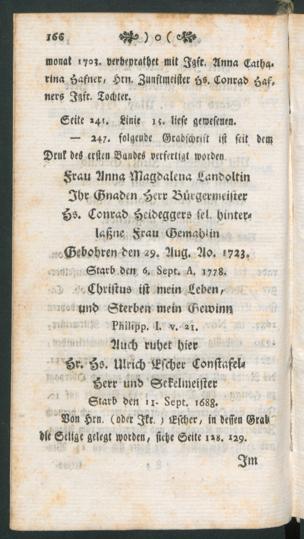 166 ) o (
monat 1703. verheyrathet mit Jgfr. Anna Catha-
rina Hafner, Hrn. Zunftmeister Hs. Conrad Haf-
ners Jgfr. Tochter.
Seite 241. Linie 15. liese gewesenen.
— 247. folgende Grabschrift ist seit dem
Druk des ersten Bands verfertigt worden
Frau Anna Magdalena Landoltin
Ihr Gnaden Herr Bürgermeister
Hs. Conrad Heideggers sel. hinter-
laßne Frau Gemahlin
Gebohren den 29. Aug. Ao. 1723.
Starb den 6. Sept. A. 1778.
Christus ist mein Leben,
und Sterben mein Gewinn
Philipp. I. v. 21.
Auch ruhet hier
Hr. Hs. Ulrich Escher Constafel-
Herr und Sekelmeister
Starb den 11. Sept. 1688.
Von Hrn. (oder Jkr. ) Escher, in dessen Grab
die Selige gelegt worden, siehe Seite 128. 129.
Im